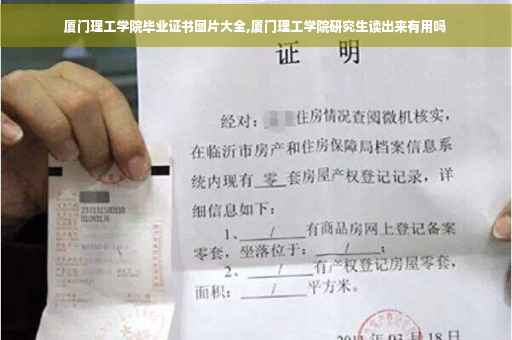 厦门理工学院毕业证书图片大全,厦门理工学院研究生读出来有用吗
证 明
经对: 住房情况查阅微机核实,
在临沂市房产和住房保障局档案信息系
统内现有 零 套房屋产权登记记录,详
细信息如下:
1、 / 有商品房网上登记备案
零套,坐落位于: / ;
2、 / 有产权登记房屋零套,
面积: / 平方米。
03月18日